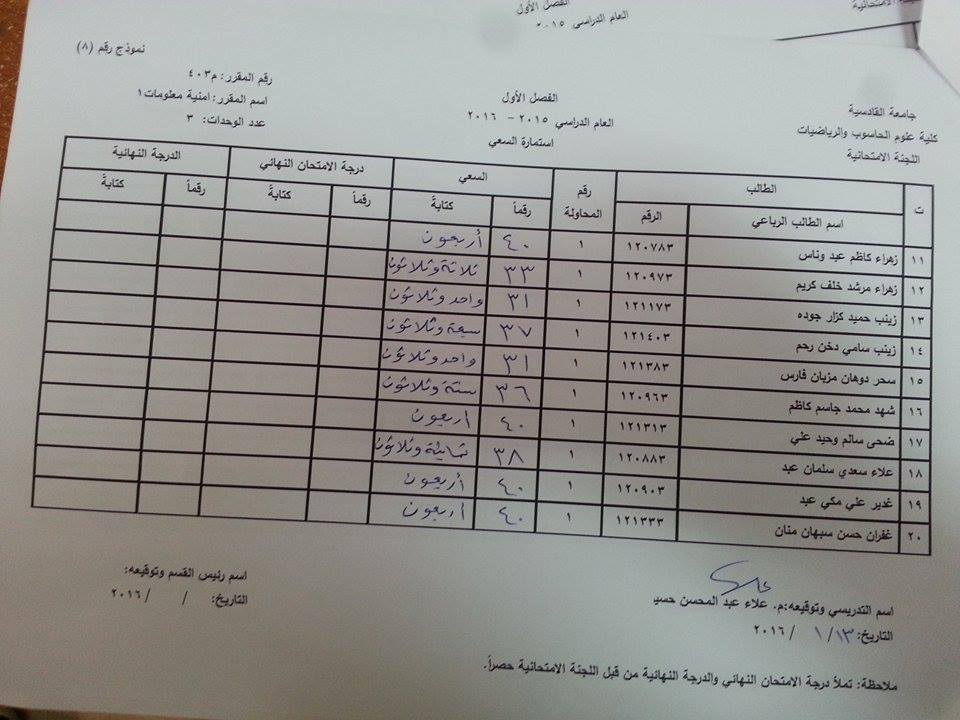 الفصل الأول
العام الدراسي ٢٠١٥
نموذج رقم (٨)
جامعة القادسية
كلية علوم الحاسوب والرياضيات
اللجنة الامتحانية
الفصل الأول
العام الدراسي ٢٠١٥ - ٢٠١٦
استمارة السعي
رقم المقرر: م٤٠٣
اسم المقرر: امنية معلومات١
عدد الوحدات: ٣
ت الطالب رقم المحاولة السعي درجة الامتحان النهائي الدرجة النهائية
اسم الطالب الرباعي الرقم رقماً كتابةً رقماً كتابةً رقماً كتابةً
١١ زهراء كاظم عبد وناس ١٢٠٧٨٣ ١ ٤٠ أربعون
١٢ زهراء مرشد خلف كريم ١٢٠٩٧٣ ١ ٣٣ ثلاثة وثلاثون
١٣ زينب حميد كزار جوده ١٢١١٧٣ ١ ٣١ واحد وثلاثون
١٤ زينب سامي دخن رحم ١٢١٤٠٣ ١ ٣٧ سبعة وثلاثون
١٥ سحر دوهان مزبان فارس ١٢١٣٨٣ ١ ٣١ واحد وثلاثون
١٦ شهد محمد جاسم كاظم ١٢٠٩٦٣ ١ ٣٦ ستة وثلاثون
١٧ ضحى سالم وحيد علي ١٢١٣١٣ ١ ٤٠ اربعون
١٨ علاء سعدي سلمان عبد ١٢٠٨٨٣ ١ ٣٨ ثمانية وثلاثون
١٩ غدير علي مكي عبد ١٢٠٩٠٣ ١ ٤٠ أربعون
٢٠ غفران حسن سبهان منان ١٢١٣٣٣ ١ ٤٠ أربعون
اسم التدريسي وتوقيعه:م. علاء عبد المحسن حسي
التاريخ: ١٣/ ١ / ٢٠١٦
اسم رئيس القسم وتوقيعه:
التاريخ: / / ٢٠١٦
ملاحظة: تملأ درجة الامتحان النهائي والدرجة النهائية من قبل اللجنة الامتحانية حصراً.